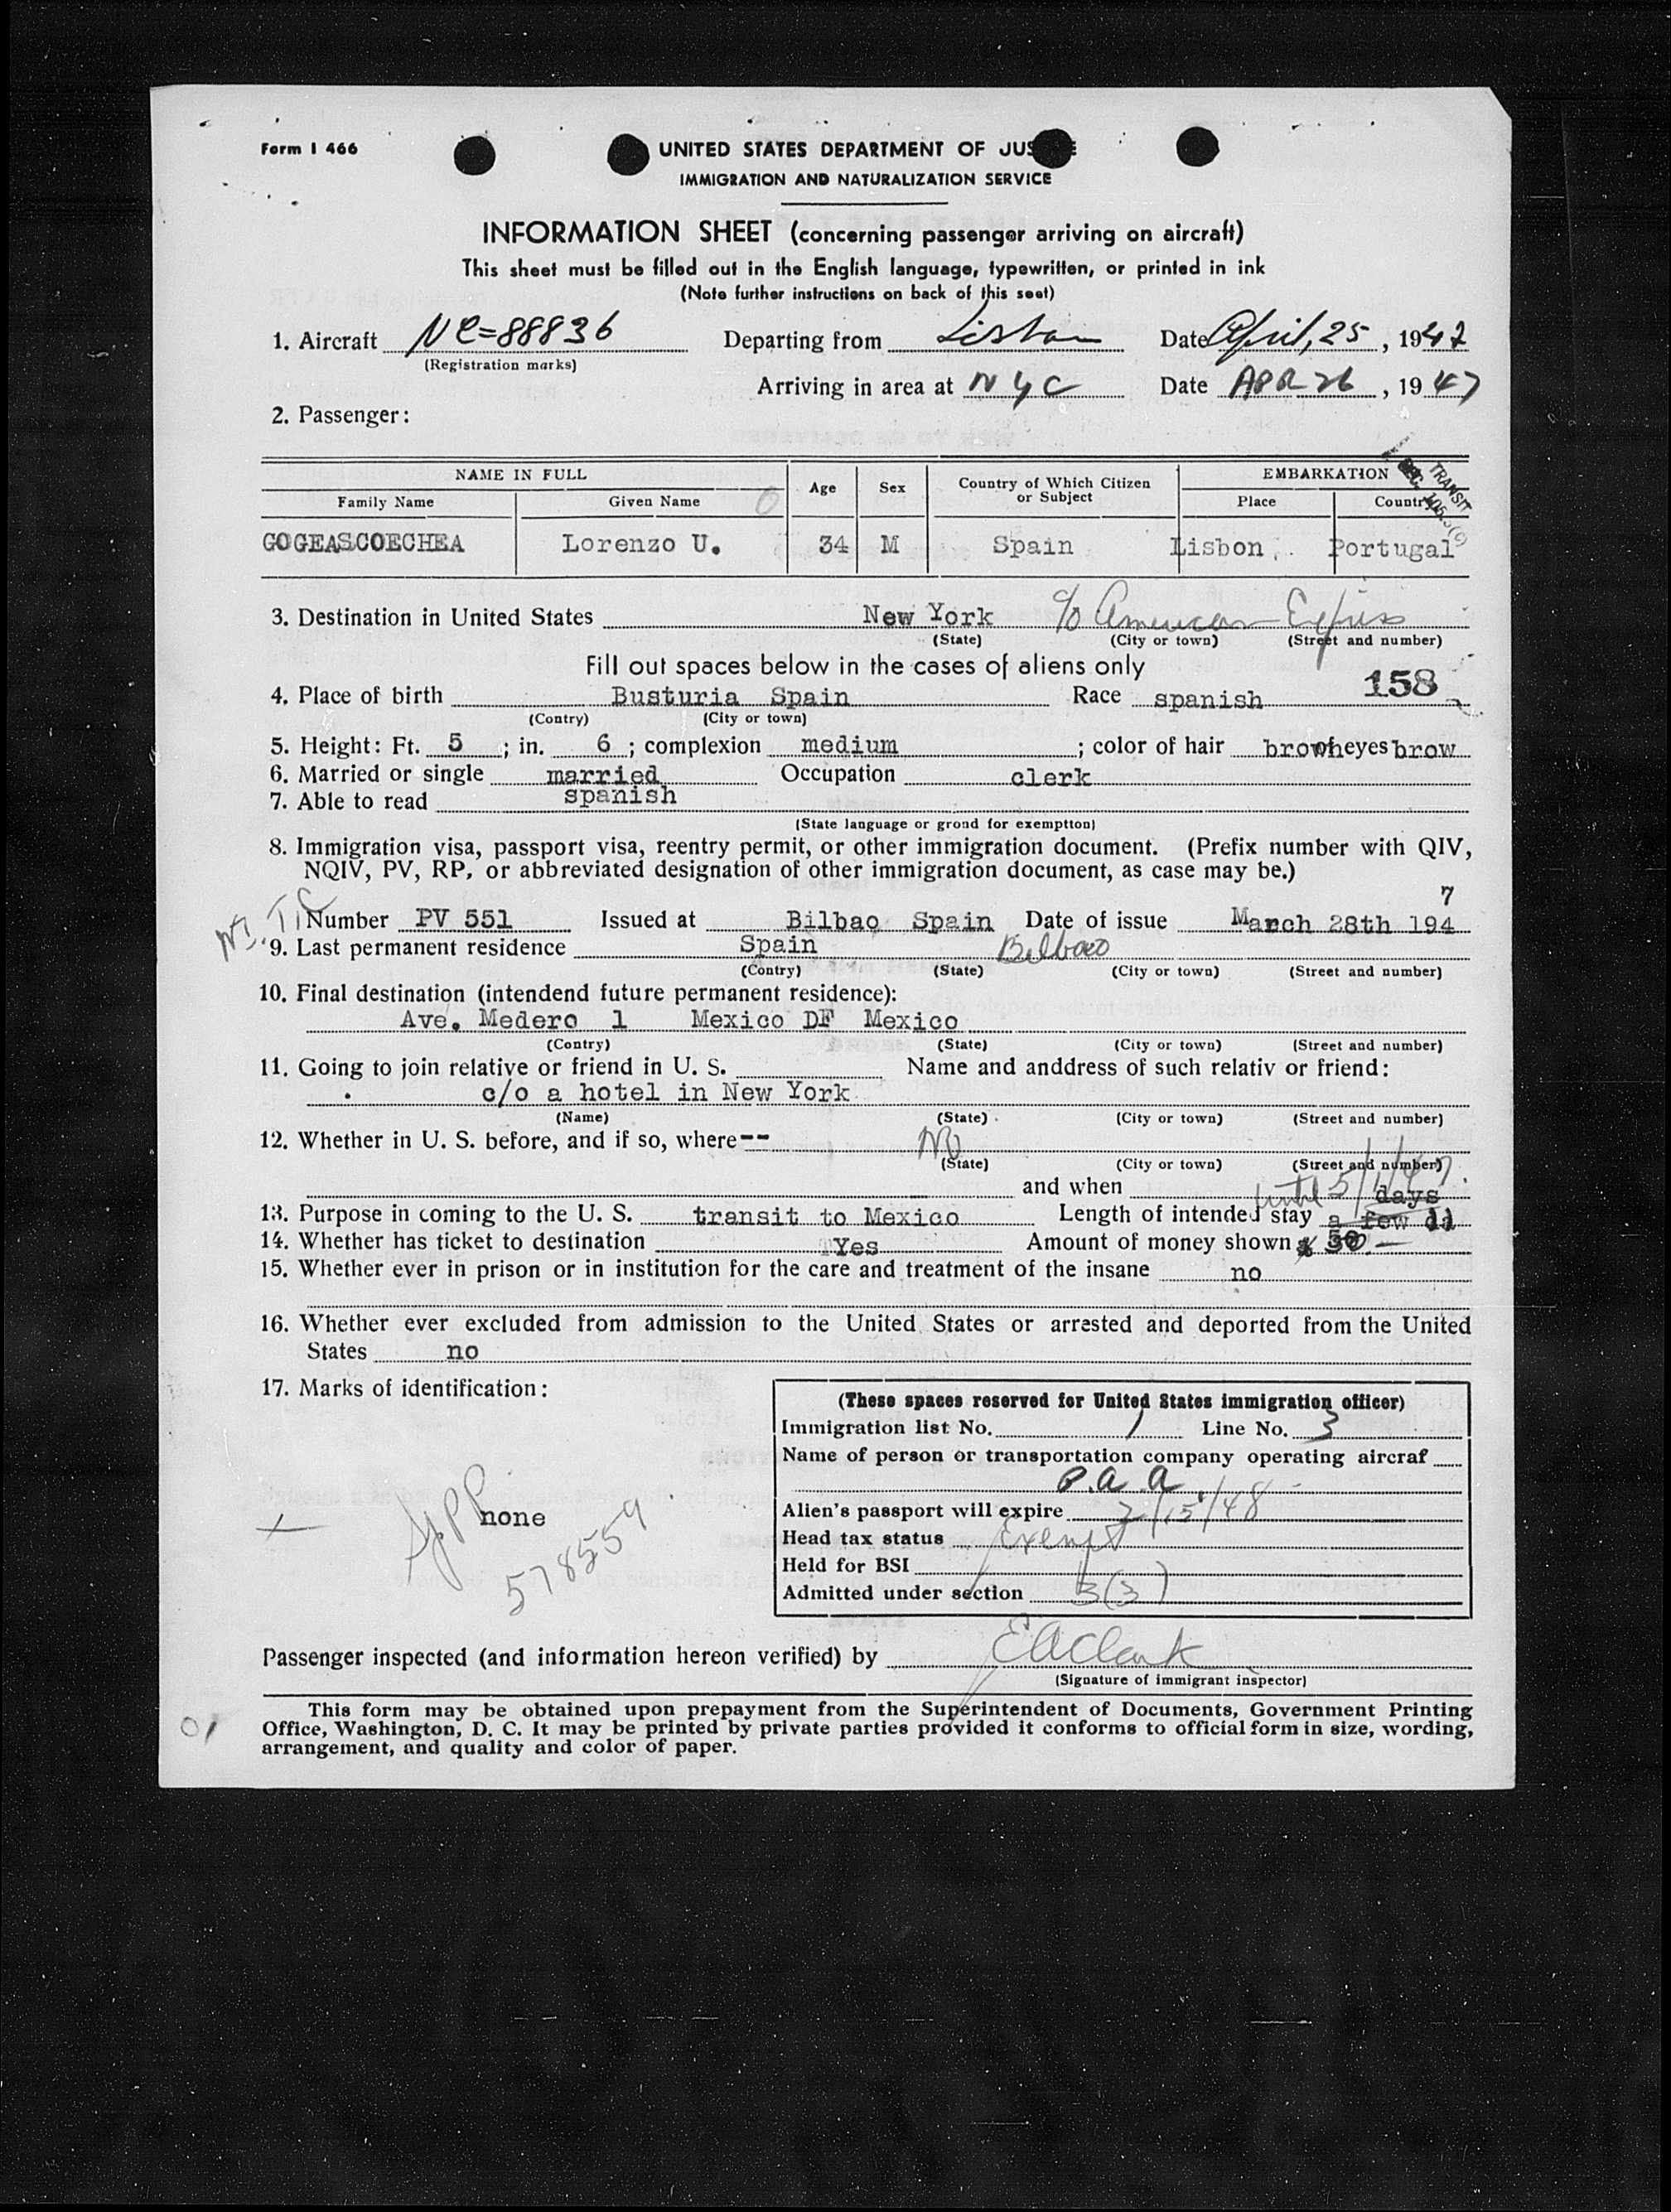 Form I 466
UNITED STATES DEPARTMENT OF JUS E
IMMIGRATION AND NATURALIZATION SERVICE
INFORMATION SHEET (concerning passenger arriving on aircraft)
This sheet must be filled out in the English language, typewritten, or printed in ink
(Note further instructions on back of this seet)
1. Aircraft NC=88836 Departing from Lisbon Date April, 25, 1947
(Registration marks)
Arriving in area at NYC Date APR 26, 1947
2. Passenger:
NAME IN FULL Age Sex Country of Which Citizen or Subject EMBARKATION TRANSIT
Family Name Given Name Place Country
GOGEASCOECHEA Lorenzo U. 34 M Spain Lisbon Portugal
3. Destination in United States New York c/o American Express
(State) (City or town) (Street and number)
Fill out spaces below in the cases of aliens only
158
4. Place of birth Busturia Spain Race spanish
(Contry) (City or town)
5. Height: Ft. 5; in. 6; complexion medium; color of hair brown eyes brow
6. Married or single married Occupation clerk
7. Able to read spanish
(State language or grond for exemptton)
8. Immigration visa, passport visa, reentry permit, or other immigration document. (Prefix number with QIV,
NQIV, PV, RP, or abbreviated designation of other immigration document, as case may be.)
7
Number PV 551 Issued at Bilbao Spain Date of issue March 28th 194
9. Last permanent residence Spain Bilbao
(Contry) (State) (City or town) (Street and number)
10. Final destination (intendend future permanent residence):
Ave. Medero 1 Mexico DF Mexico
(Contry) (State) (City or town) (Street and number)
11. Going to join relative or friend in U. S. Name and anddress of such relativ or friend:
c/o a hotel in New York
(Name) (State) (City or town) (Street and number)
12. Whether in U. S. before, and if so, where-- No
(State) (City or town) (Street and number)
and when until 5/1/47. days
13. Purpose in coming to the U. S. transit to Mexico Length of intended stay a few
14. Whether has ticket to destination Yes Amount of money shown $ 50.—
15. Whether ever in prison or in institution for the care and treatment of the insane no
16. Whether ever excluded from admission to the United States or arrested and deported from the United
States no
17. Marks of identification:
none
578559
(These spaces reserved for United States immigration officer)
Immigration list No. 1 Line No. 3
Name of person or transportation company operating aircraf
P.A.A.
Alien's passport will expire 2/15/48
Head tax status Exempt
Held for BSI
Admitted under section 3(3)
Passenger inspected (and information hereon verified) by EAClark
(Signature of immigrant inspector)
This form may be obtained upon prepayment from the Superintendent of Documents, Government Printing
Office, Washington, D. C. It may be printed by private parties provided it conforms to official form in size, wording,
arrangement, and quality and color of paper.
01